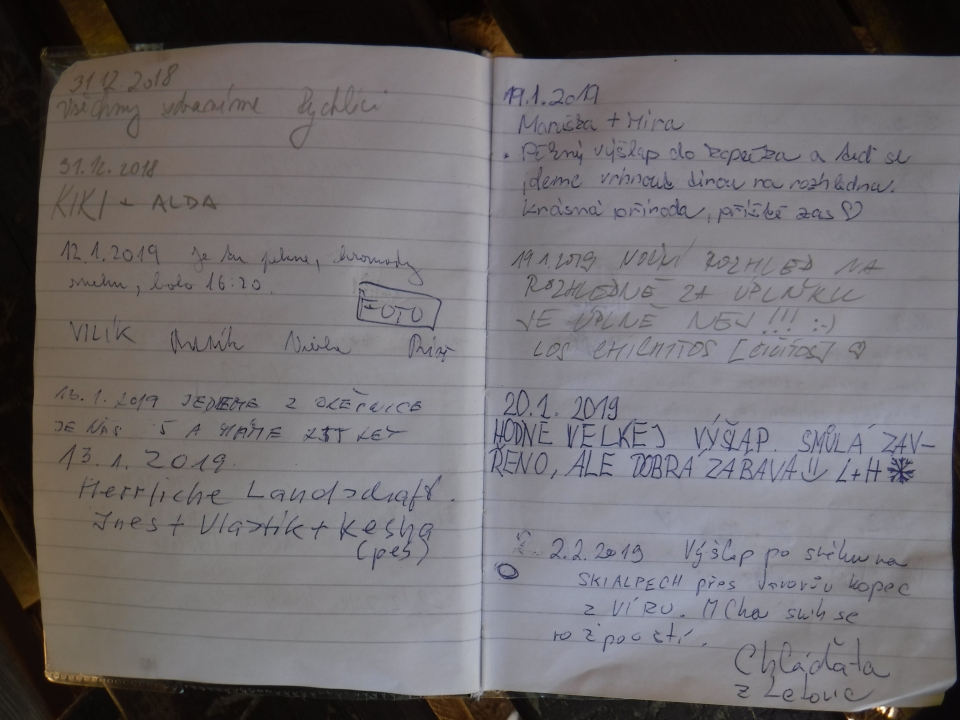 31.12.2018
Všechny zdravíme Rychlíci
31.12.2018
KIKI + ALDA
12.1.2019 Je tu pěkně, hromady
sněhu, bolo 16:20.
FOTO
VILÍK Radník Nikola
13.1.2019 JEDEME Z OLEŠNICE
JE NÁS 5 A MÁME LET
13.1.2019.
Herrliche Landschaft.
Ines + Vlastík + Kesha
(pes)
19.1.2019
Maruška + Míra
• Pěkný výšlap do kopečka a teď se
jdeme vrhnout dírou na rozhlednu.
Krásná příroda, příště zas ♡
19.1.2019 NOČNÍ ROZHLED NA
ROZHLEDNĚ ZA ÚPLŇKU
JE ÚPLNĚ NEJ!!! :-)
LOS CHICHITOS [ČIČITOS] ♡
20.1. 2019
HODNĚ VELKEJ VÝŠLAP. SMŮLA ZAV-
ŘENO, ALE DOBRÁ ZÁBAVA L+H
2.2.2019 Výšlap po sněhu na
SKIALPECH přes kopec
z VÍRU. Mlha sníh se
rozpouští.
Chláďata
z Letovic